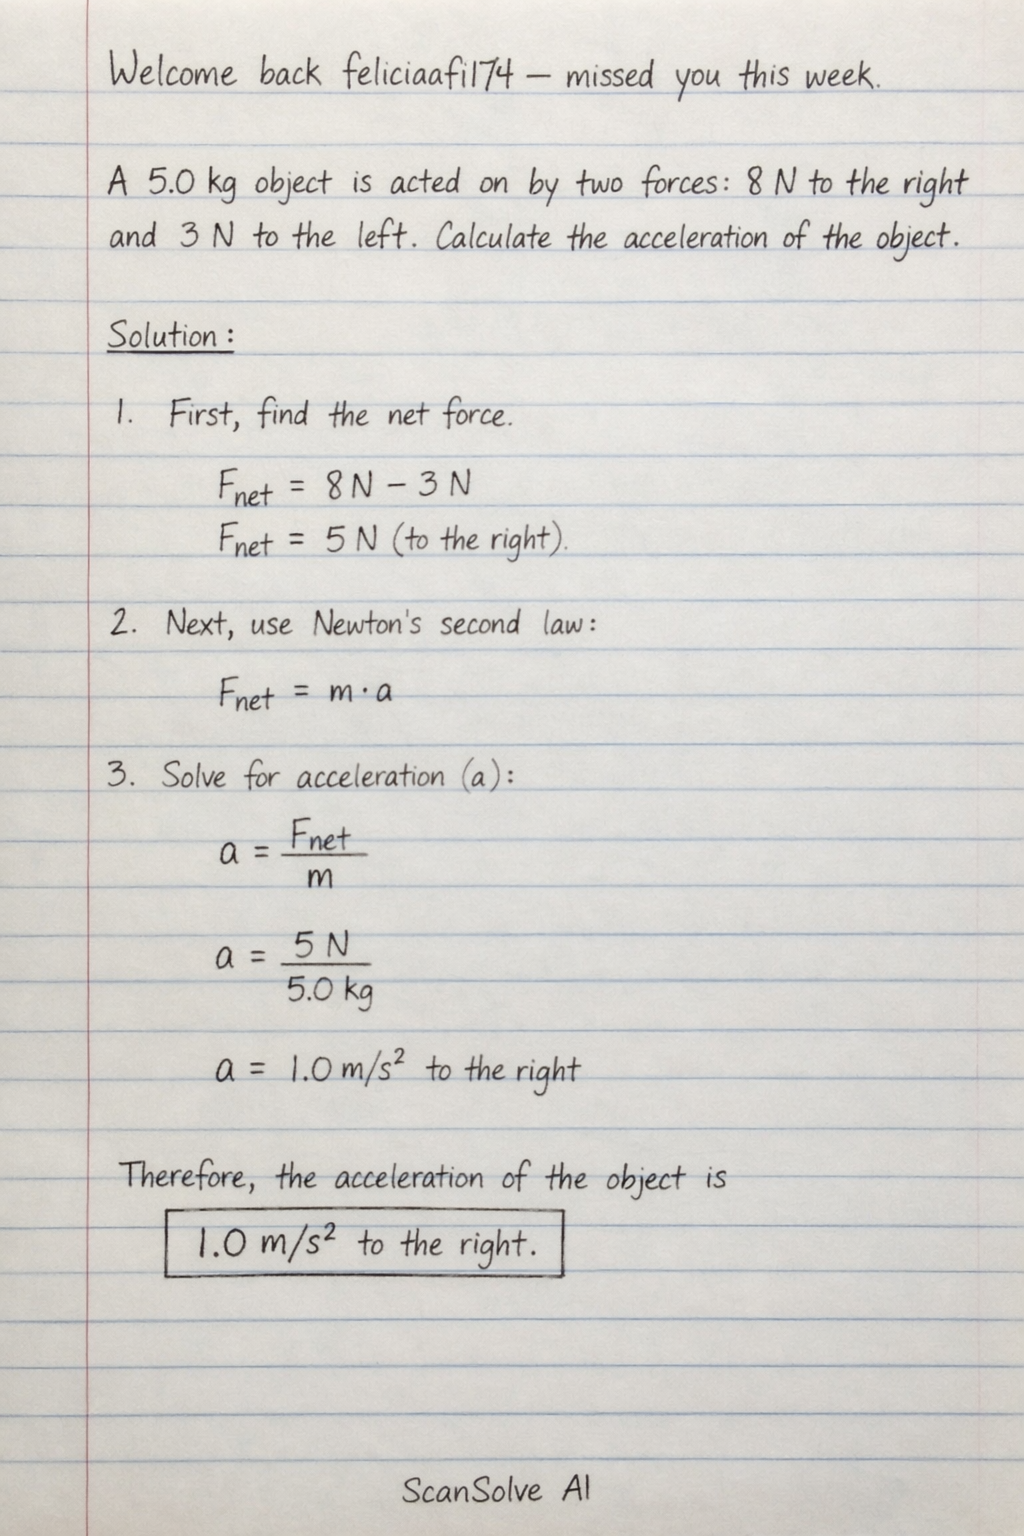 Welcome back feliciaafi174 – missed you this week.
A 5.0 kg object is acted on by two forces: 8 N to the right
and 3 N to the left. Calculate the acceleration of the object.
Solution:
1. First, find the net force.
Fnet = 8 N – 3 N
Fnet = 5 N (to the right).
2. Next, use Newton's second law:
Fnet = m · a
3. Solve for acceleration (a):
a = Fnet / m
a = 5 N / 5.0 kg
a = 1.0 m/s² to the right
Therefore, the acceleration of the object is
1.0 m/s² to the right.
ScanSolve AI